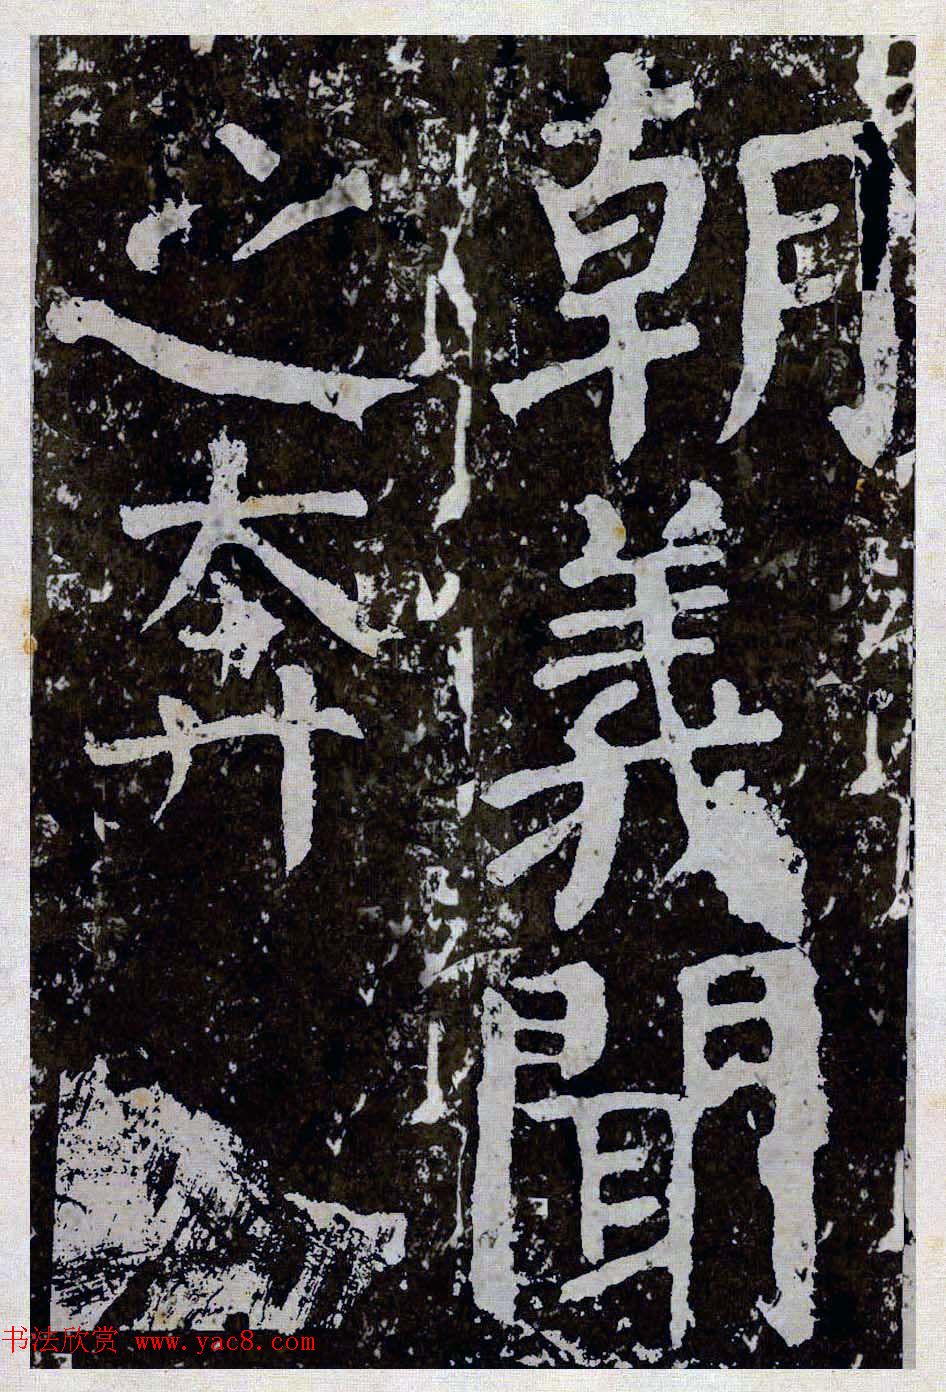 朝義聞
之奔
书法欣赏 www.yac8.com